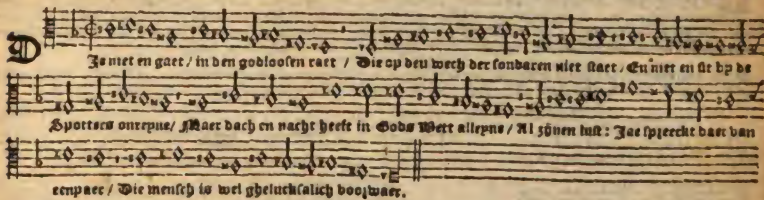 D
Ie niet en gaet / in den godloosen raet / Die op den wech der sondaren niet staet / En niet en sit by de
Spotters onreyne / Maer dach en nacht heeft in Gods Wett alleyne / Al zijnen lust: Jae spreeckt daer van
eenpaer / Die mensch is wel ghelucksalich voorwaer.